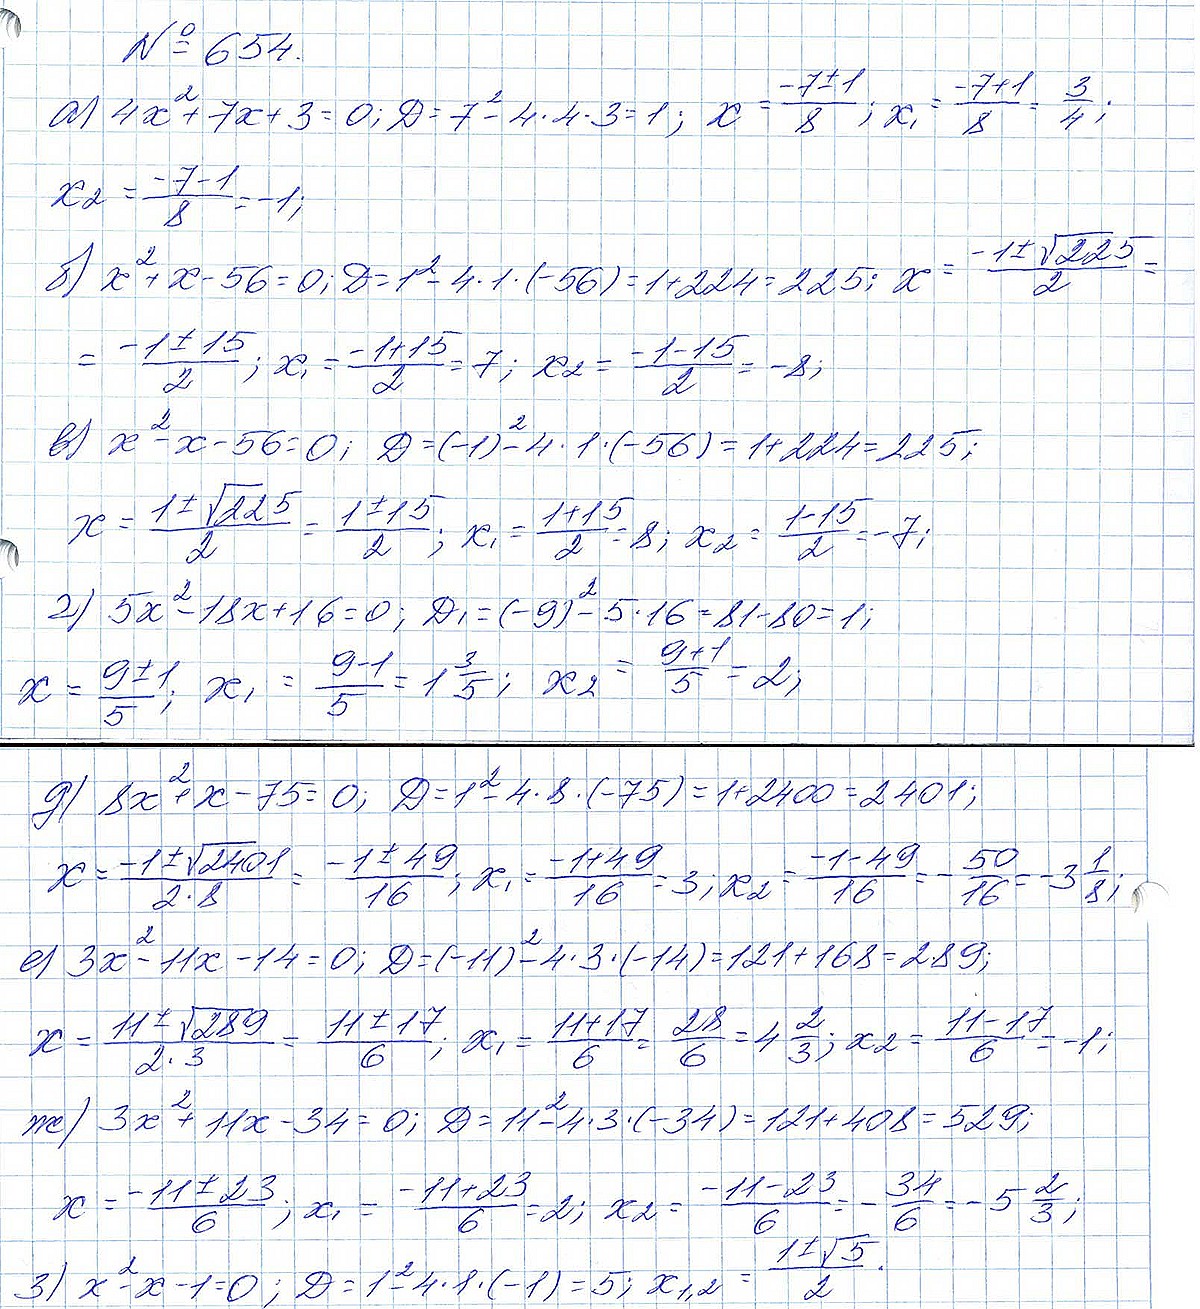 № 654.
а) 4x² + 7x + 3 = 0; D = 7² - 4·4·3 = 1; x = (-7±1)/8; x₁ = (-7+1)/8 = 3/4;
x₂ = (-7-1)/8 = -1;
б) x² + x - 56 = 0; D = 1² - 4·1·(-56) = 1+224 = 225; x = (-1±√225)/2 =
= (-1±15)/2; x₁ = (-1+15)/2 = 7; x₂ = (-1-15)/2 = -8;
в) x² - x - 56 = 0; D = (-1)² - 4·1·(-56) = 1+224 = 225;
x = (1±√225)/2 = (1±15)/2; x₁ = (1+15)/2 = 8; x₂ = (1-15)/2 = -7;
г) 5x² - 18x + 16 = 0; D₁ = (-9)² - 5·16 = 81-80 = 1;
x = (9±1)/5; x₁ = (9-1)/5 = 1 3/5; x₂ = (9+1)/5 = 2;
д) 8x² + x - 75 = 0; D = 1² - 4·8·(-75) = 1+2400 = 2401;
x = (-1±√2401)/(2·8) = (-1±49)/16; x₁ = (-1+49)/16 = 3; x₂ = (-1-49)/16 = -50/16 = -3 1/8;
е) 3x² - 11x - 14 = 0; D = (-11)² - 4·3·(-14) = 121+168 = 289;
x = (11±√289)/(2·3) = (11±17)/6; x₁ = (11+17)/6 = 28/6 = 4 2/3; x₂ = (11-17)/6 = -1;
ж) 3x² + 11x - 34 = 0; D = 11² - 4·3·(-34) = 121+408 = 529;
x = (-11±23)/6; x₁ = (-11+23)/6 = 2; x₂ = (-11-23)/6 = -34/6 = -5 2/3;
з) x² - x - 1 = 0; D = 1² - 4·1·(-1) = 5; x₁,₂ = (1±√5)/2.